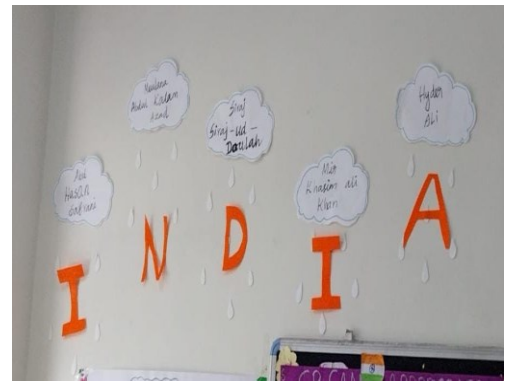 Abid
Hasan
Safrani
Maulana
Abdul Kalam
Azad
Siraj
Siraj-ud-
Daulah
Mir
Khasim ali
Khan
Hyder
Ali
I N D I A